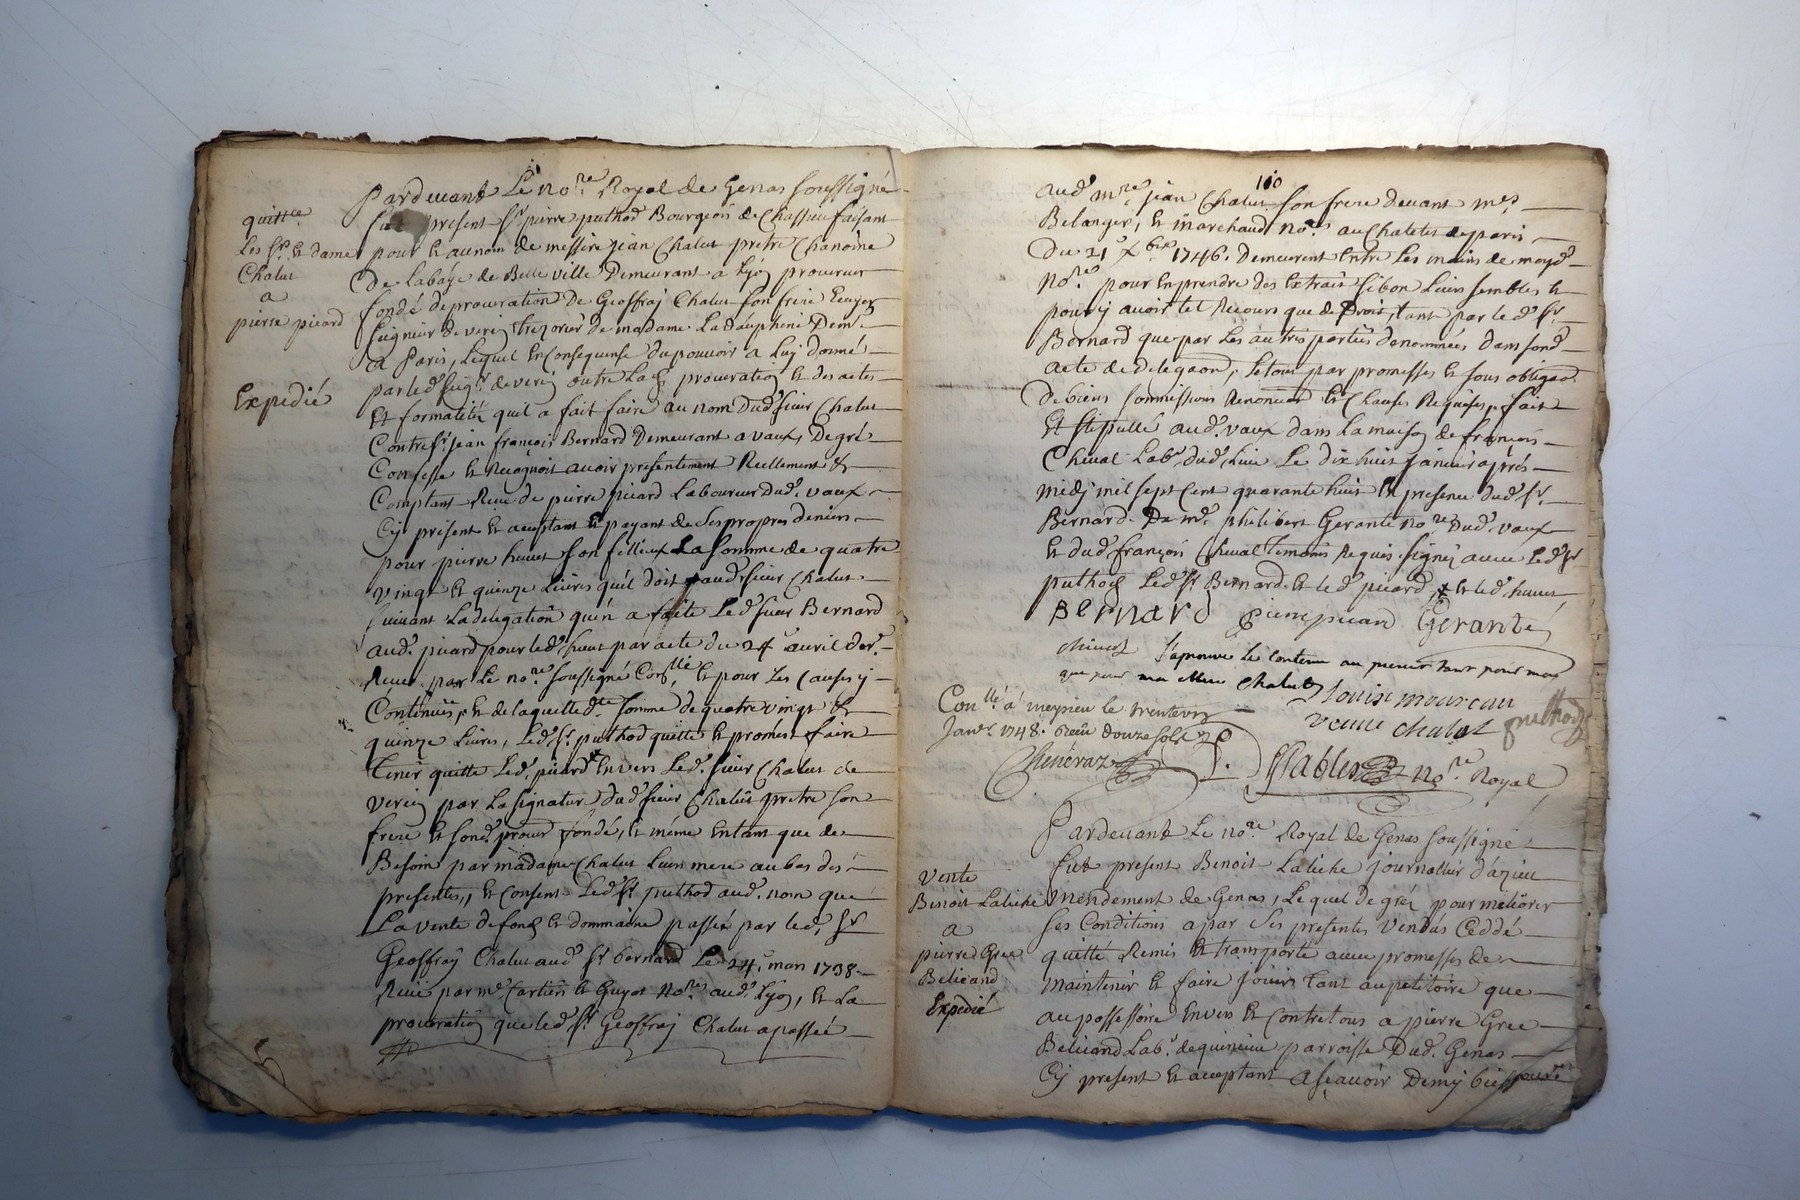 quittce
Les Srs et dame
Chalut
a
pierre picard
Expedié
Pardevant Le nore Royal de Genas soussigné
fut present Sr pierre puthod Bourgeois de Chassieu faisant
pour et au nom de messire jean Chalut pretre Chanoine
De Labaÿe de Belle ville Demeurant a Lÿon procureur
fondé de procuration De Geoffraÿ Chalut son frere Ecuyer
seigneur de verin trezorier de madame La dauphine Demt
a Paris, Lequel En Consequense du pouvoir a Luÿ donné
par led seigr de verin outre Lad procuration et des actes
Et formalités quil a fait faire au nom Dud sieur Chalut
Contre Sr jean françois Bernard Demeurant a vaux, De gré
Confesse et Recognoit avoir presentement Reellement et
Comptant Reçu de pierre picard Laboureur dud. vaux
Cÿ présent et acceptant et payant de Ses propres deniers
pour pierre huvet son fillieux La somme de quatre
vingt et quinze Livres quil doit aud sieur Chalut
suivant La délégation qu'en a faite Led sieur Bernard
aud. picard pour led. huvet par acte du 24 avril der.
Reçu par Le nore soussigné Conllé, et pour Les Causes ÿ
Contenües, et de laquelle dte somme de quatre vingt et
quinze Livres, Led Sr. puthod quitte et promet faire
tenir quitte Led. picard Envers Led. sieur Chalut de
verin par La signature dud sieur Chalut pretre son
frere et sond procur fondé, et même Entant que de
Besoin par madame Chalut Leur mere au bas des
presentes, et Consent Led Sr puthod aud. nom que
La vente de fonds et dommaine passée par led, Sr
Geoffraÿ Chalut aud Sr bernard Le 24 mars 1738.
Reçüe par me Cartier et Guyot Nores aud. Lÿon, et La
procuration que led Sr Geoffraÿ Chalut a passée
110
aud mre jean Chalut son frere devant mes
Belanger, et marchand nores au Chatelet de paris
Du 21 Xbre 1746. Demeurent Entre Les mains de moyd
Nore pour En prendre des Extraits si bon Leur semble et
pour ÿ avoir tel Recours que de Droit, tant par led Sr
Bernard que par Les autres parties denommées dans sond
acte de delegaon, Le tout par promesses et sous obligaon
De biens soumissions Renonceaon et Clauses Requises, fait
Et stipullé aud. vaux dans La maison de françois
Cheval Labr dud, Lieu Le dix huit janvier après
midÿ mil sept Cent quarante huit En presence dud Sr
Bernard. De me philibert Gerante nore Dud. vaux
et dud françois Cheval temoins Requis signés avec Led Sr
puthod Led Sr Bernard et led picard, et led huvet
Bernard pierre picard Gerante
J'aprouve Le Contenu au present tant pour moy
que pour ma mere Chalut
Louise moureau
veuve chalut puthod
Conllé a meyzieu le trente un
Janvr 1748. Reçu douze sols
Chenéraz
Sables nore Royal
Vente
Benoit Laliche
a
pierre Gree
Belicand
Expedié
Pardevant Le nore Royal de Genas soussigné
fut present Benoit Laliche journallier d'azieu
mendement de Genas, Lequel De gré, pour meliorer
ses Conditions a par Ses presentes Vendus Céddé
quitté Remis et transporté avec promesses de
maintenir et faire joüir tant au petitoire que
au possessoire Envers et Contre tous a pierre Gree
Belicand Labr. de quincieu parroisse Dud. Genas
Cÿ present et acceptant a sçavoir Demÿ